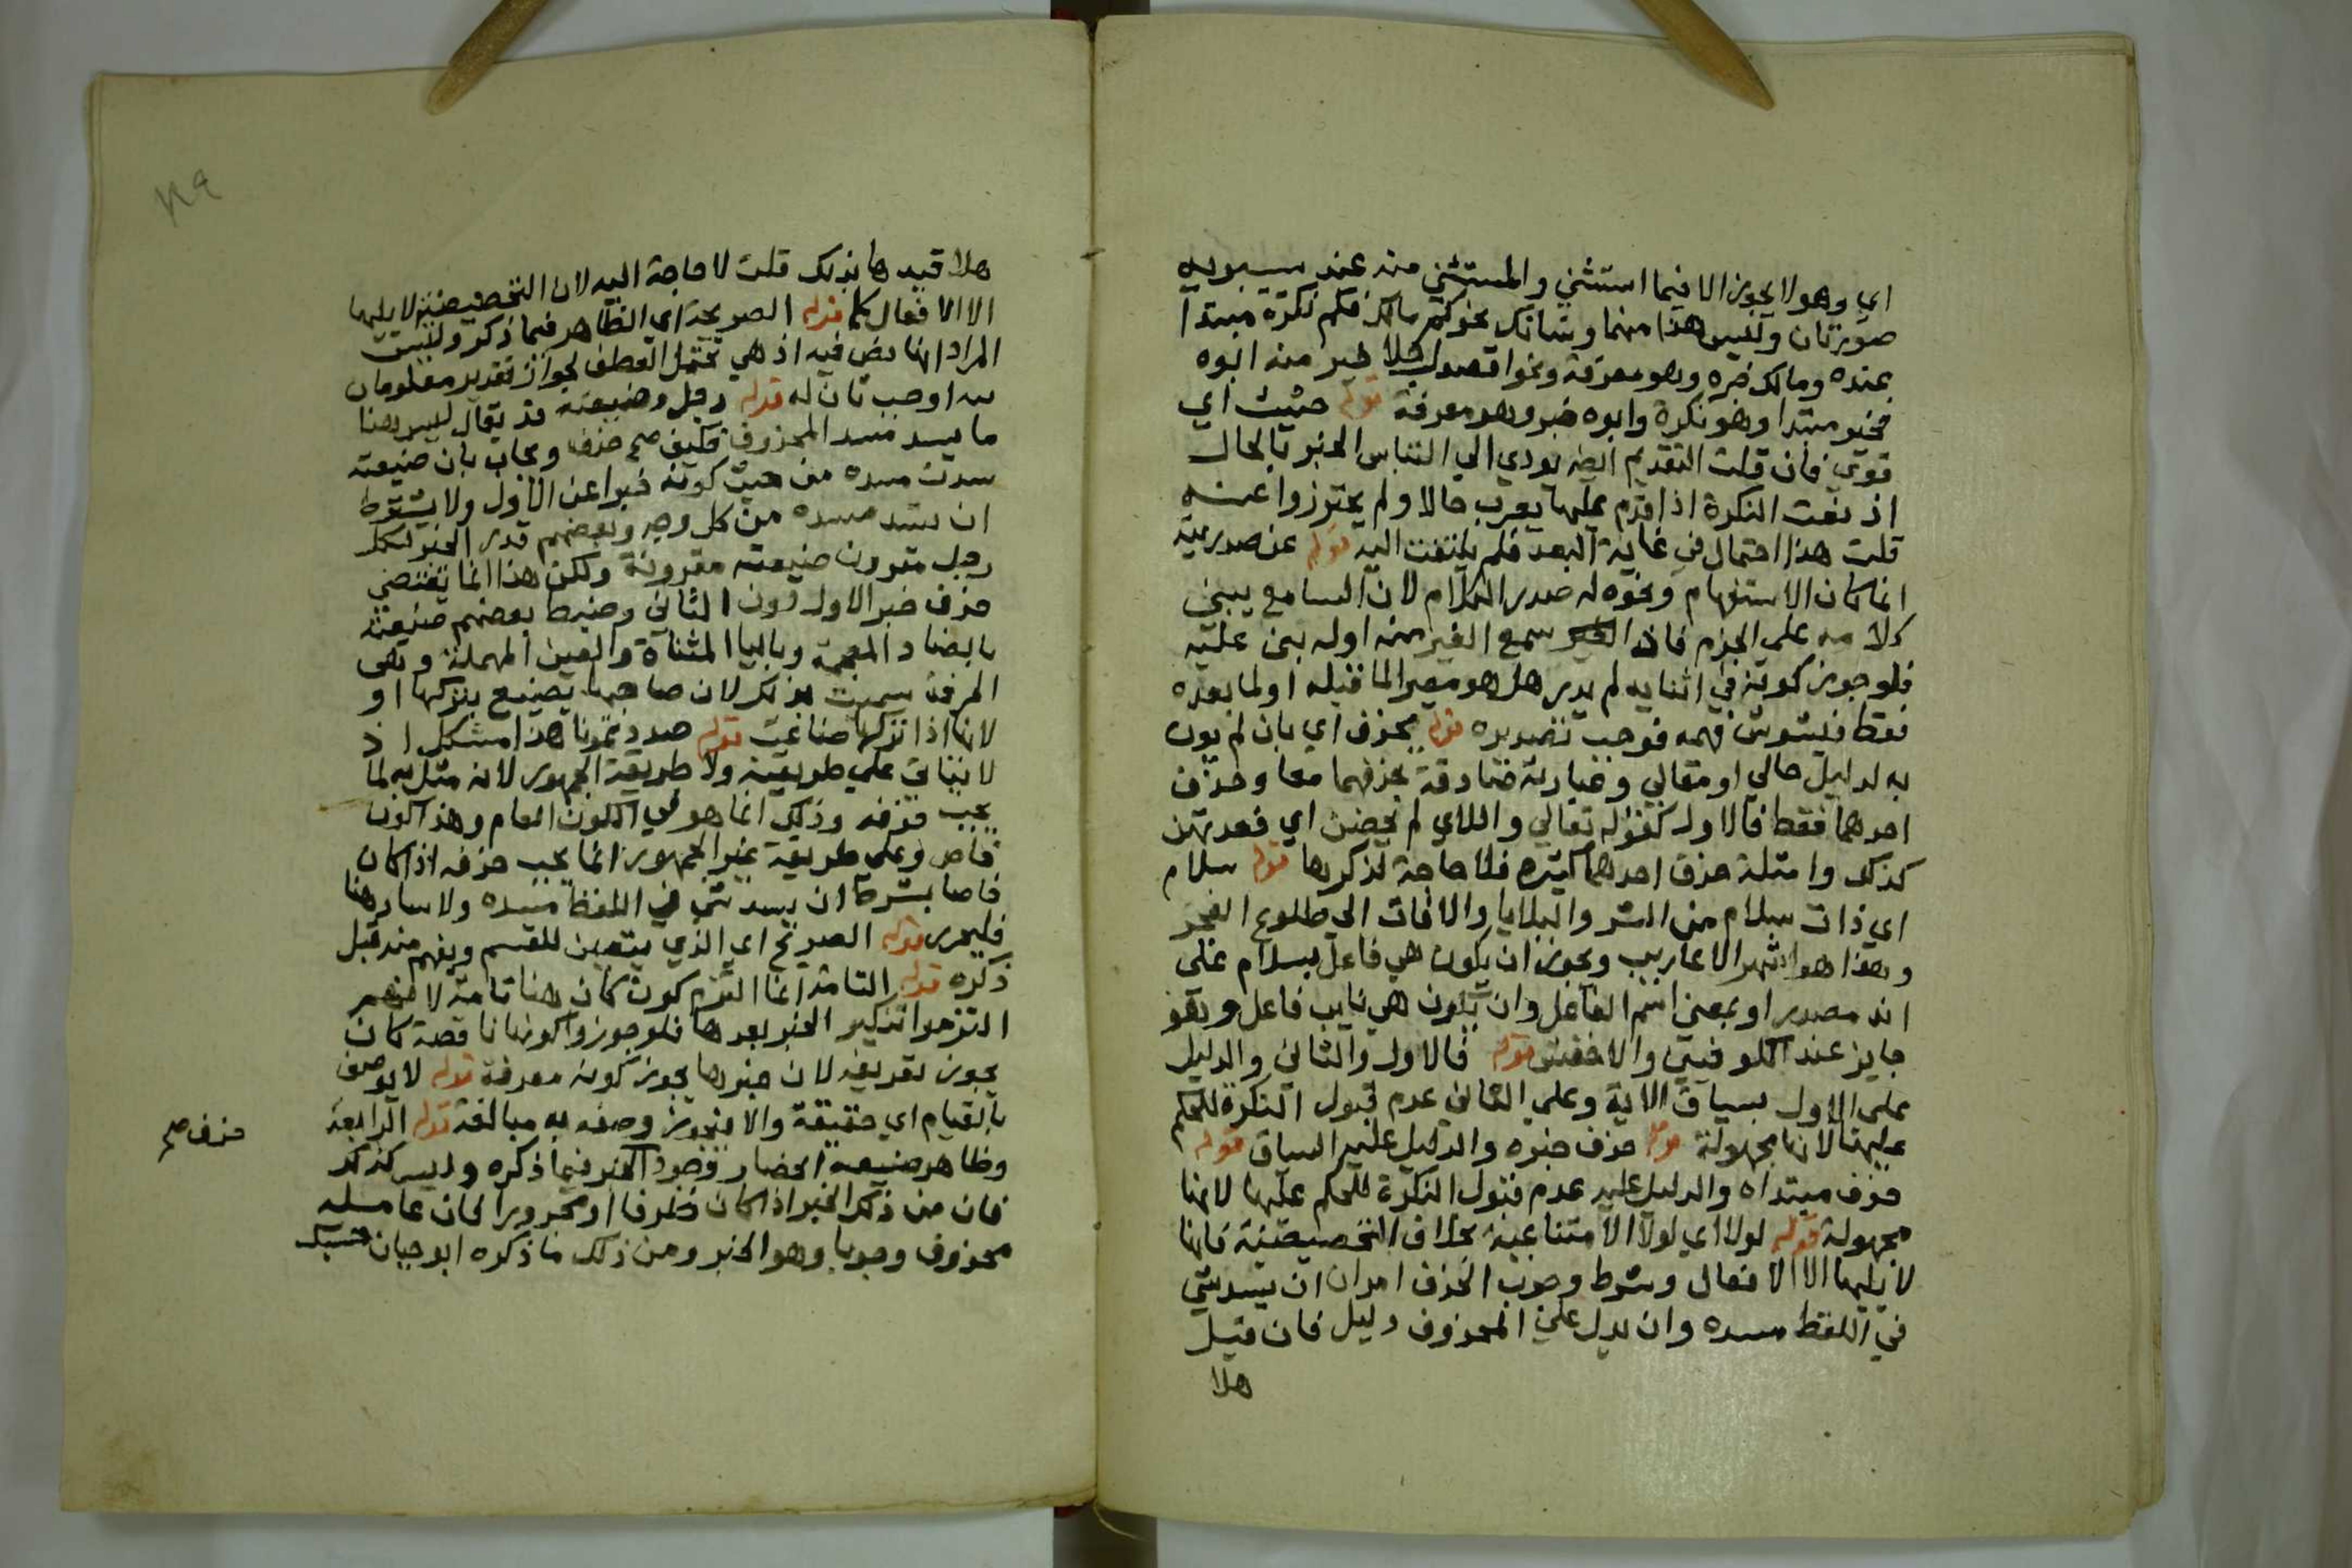 اي وهو لا يجوز الا فيما استثني والمستثني منه عند سيبويه
صورتان وليس هذا منهما وشانك نحو كم مالك فكم نكرة مبتدا
عنده ومالك خبره وهو معرفة ونحو اقصد رجلا خير منه ابوه
فخير مبتدا وهو نكرة وابوه خبر وهو معرفة قوله حيث اي
قوي فان قلت التقديم ايضا يودي الي التباس الخبر بالحال
اذ نعت النكرة اذا قدم عليها يعرب حالا ولم يحترزوا عنه
قلت هذا احتمال في غاية البعد فلم يلتفت اليه قوله عن صدريته
انما كان الاستفهام ونحوه له صدر الكلام لان السامع يبني
كلامه على الجزم فاذا سمع الغير منه اوله بني عليه
فلو جوز كونه في اثنايه لم يدر هل هو مغير لما قبله او لما بعده
فقط فيتشوش فهمه فوجب تصديره قوله بحذف اي بان لم يوت
به لدليل حالي او مقالي وعبارته صادقة بحذفهما معا وحذف
احدهما فقط فالاول كقوله تعالي واللاي لم يحضن اي فعدتهن
كذلك وامثلة حذف احدهما كثيرة فلا حاجة لذكرها قوله سلام
اي ذات سلام من الشر والبلايا والافات الي طلوع الفجر
وهذا هو اشهر الاعاريب ويجوز ان يكون هي فاعل بسلام على
انه مصدر او بمعني اسم الفاعل وان يكون هي نايب فاعل وهو
جايز عند الكوفيين والاخفش قوله فالاول والثاني والدليل
على الاول سياق الاية وعلي الثاني عدم قبول النكرة للحكم
عليها لانها مجهولة قوله حذف خبره والدليل عليه السياق قوله
حذف مبتداه والدليل عليه عدم قبول النكرة للحكم عليها لانها
مجهولة قوله لولا اي لولا الامتناعية بخلاف التحضيضية فانها
لا يليها الا الافعال وشرط وجوب الحذف امران ان يسد شي
في اللفظ مسده وان يدل علي المحذوف دليل فان قيل
هلا
هلا قيدها بذلك قلت لا حاجة اليه لان التحضيضية لا يليها
الا الافعال كما قوله الصريحة اي الظاهر فيما ذكر وليست
المراد النص فيه اذ هي تحتمل العطف لجواز تقدير معطوفان
اوجب تان له قوله رجل وضيعته قد يقال ليس هنا
ما يسد مسد المحذوف فكيف صح حذف ويجاب بان ضيعته
سدت مسده من حيث كونه خبرا عن الاول ولا يشترط
ان يسد مسده من كل وجه وبعضهم قدر الخبر لكل
رجل مقرون ضيعته مقرونة ولكن هذا انما يقتضي
حذف خبر الاول دون الثاني وضبط بعضهم ضيعته
بالضاد المعجمة وباليا المثناة والعين المهملة وهي
الحرفة سميت بذلك لان صاحبها يضيع بتركها او
لانها اذا تركها ضاعت قوله صددتمونا هذا مشكل اذ
لا يتاتي علي طريقته ولا طريقة الجمهور لانه مثل به لما
يجب حذفه وذلك انما هو في الكون العام وهذا كون
خاص وعلي طريقة غير الجمهور انما يجب حذفه اذا كان
خاصا بشرط ان يسد شي في اللفظ مسده ولا ساد هنا
فليحرر قوله الصريح اي الذي يتعين للقسم ويفهم منه قبل
ذكره قوله التامة انما التزم كون كان هنا تامة لانهم
التزموا تنكير الخبر بعدها فلو جوزوا كونها ناقصة كان
يجوز تعريفه لان خبرها يجوز كونه معرفة قوله لا يوصف
بالقيام اي حقيقة والا فيجوز وصفه به مبالغة قوله الرابعة
وظاهر صنيعه انحصار وجود الخبر فيما ذكره وليس كذلك
حذف صح
فان من ذلك الخبر اذا كان ظرفا او مجرورا كان عامله
محذوف وجوبا وهو الخبر ومن ذلك ما ذكره ابو حيان حسبك